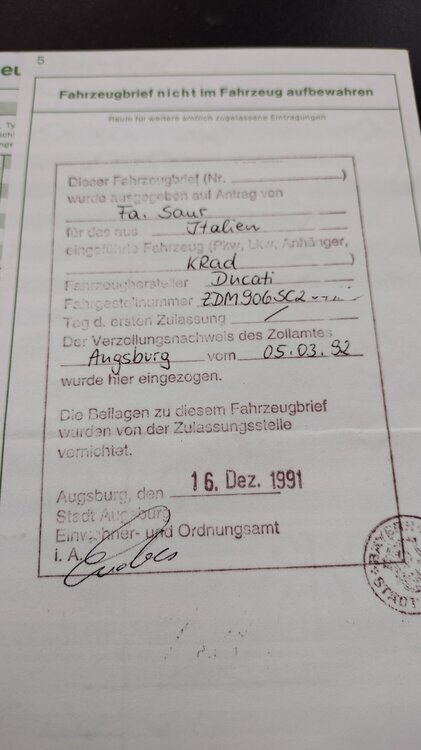 5
Fahrzeugbrief nicht im Fahrzeug aufbewahren
Raum für weitere amtlich zugelassene Eintragungen
Dieser Fahrzeugbrief (Nr. )
wurde ausgegeben auf Antrag von
Fa. Saur
für das aus Italien
eingeführte Fahrzeug (Pkw, Lkw, Anhänger,
KRad )
Fahrzeughersteller Ducati
Fahrgestellnummer ZDM906SC2
Tag d. ersten Zulassung /
Der Verzollungsnachweis des Zollamtes
Augsburg vom 05.03.92
wurde hier eingezogen.
Die Beilagen zu diesem Fahrzeugbrief
wurden von der Zulassungsstelle
vernichtet.
Augsburg, den 16. Dez. 1991
Stadt Augsburg
Einwohner- und Ordnungsamt
i. A.
BAYER
STADT